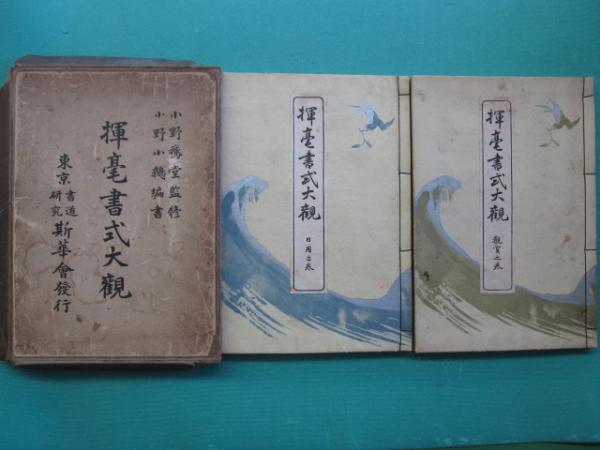 小野鵞堂監修
小野小鵞編書
揮毫書式大觀
東京書道研究斯華會發行
揮毫書式大觀
日用之巻
揮毫書式大觀
観賞之巻